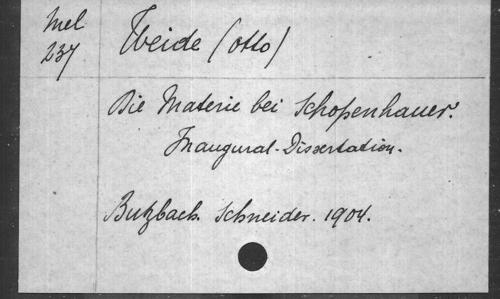 Mel
237
Weide (Otto)
Die Materie bei Schopenhauer.
Inaugural-Dissertation.
Butzbach. Schneider. 1904.